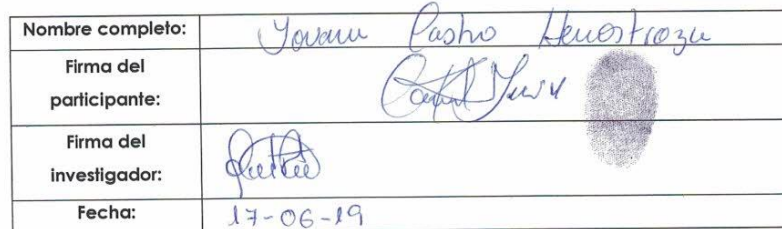 Nombre completo: Yovana Castro Henostroza
Firma del
participante:
Firma del
investigador:
Fecha: 17-06-19